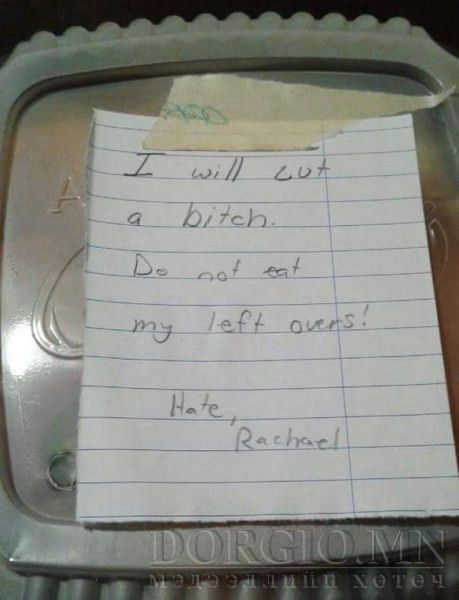 I will cut
a bitch.
Do not eat
my left overs!
Hate,
Rachael
DORGIO.MN
мэдээллийн хөтөч